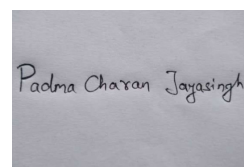 Padma Charan Jayasingh